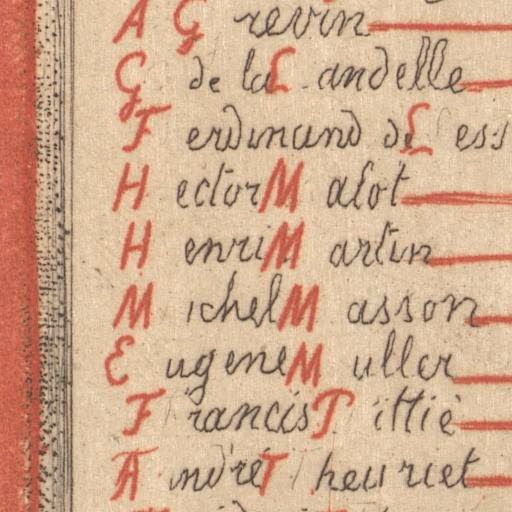 A Grevin
G de la Landelle
Ferdinand de Less
Hector Malot
Henri Martin
Michel Masson
Eugene Muller
Francis Tittiè
André Theuriet